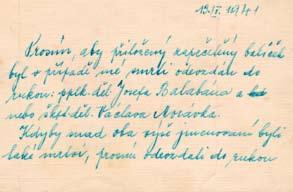 13.IV.1941
Prosím, aby přiložený zapečetěný balíček
byl v případě mé smrti odevzdán do
rukou: pplk. děl. Josefa Balabána a
nebo škpt. děl. Václava Morávka.
Kdyby snad oba výše jmenovaní byli
také mrtvi, prosím odevzdati do rukou